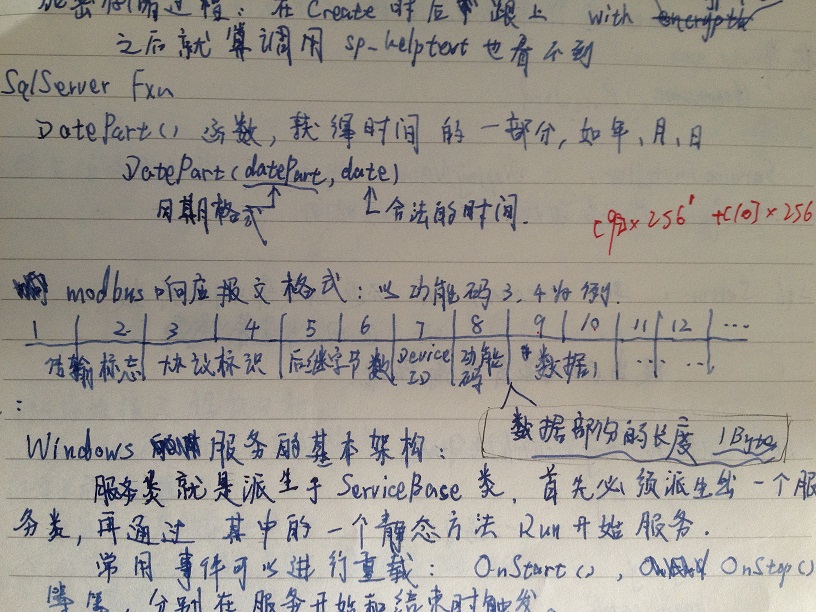 在Create时后跟上 with
之后就算调用 sp_helptext 也看不到
SqlServer Fxn
DatePart() 函数，获得时间的一部分，如年、月、日
DatePart(datePart, date)
日期格式 合法的时间.
C[9]×256' +C[10]×256
modbus响应报文格式：以功能码3、4为例.
1 2 3 4 5 6 7 8 9 10 11 12 ...
传输标志 协议标识 后继字节数 Device ID 功能码 数据1 ... ...
:
数据部份的长度 1Byte
Windows 服务的基本架构：
服务类就是派生于 ServiceBase 类，首先必须派生出一个服
务类，再通过其中的一个静态方法 Run 开始服务.
常用事件可以进行重载： OnStart() , OnStop()
等等，分别在服务开始和结束时触发。